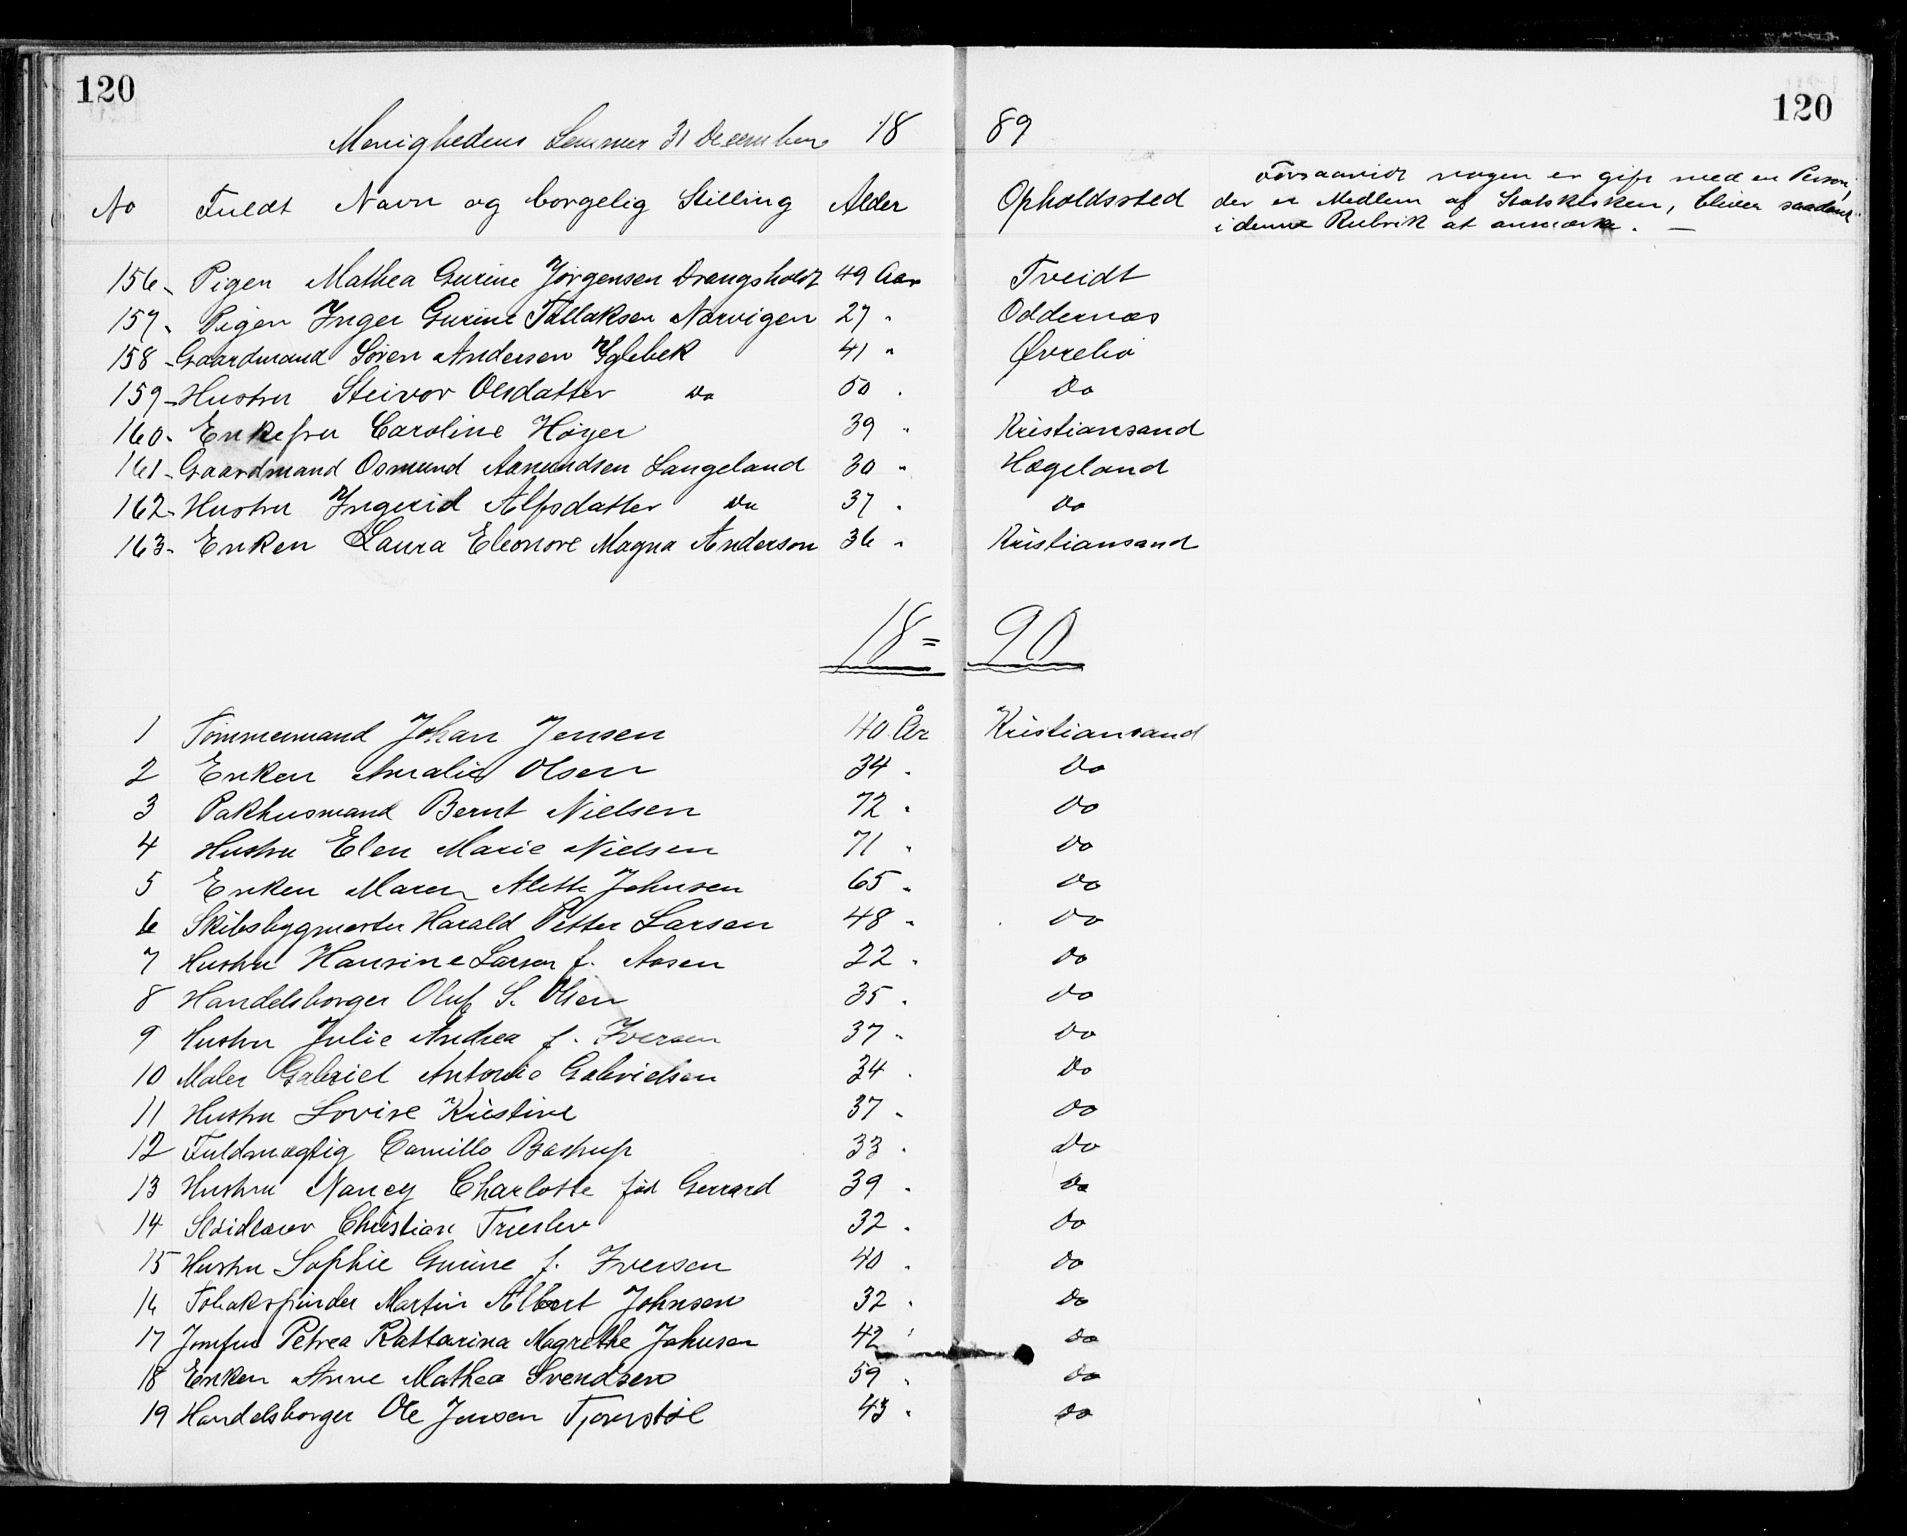 120 120
Menighedens Lemmer 31 December 18 89
No Fuldt Navn og borgelig Stilling Alder Opholdssted Forsaavidt nogen er gift med en Person,
der er Medlem af Statskirken, bliver saadant
i denne Rubrik at anmærke. —
156 - Pigen Mathea Gurine Jørgensen Drangsholdt 49 Aar Tveidt
157 - Pigen Inger Gurine Tallaksen Narvigen 27 " Oddernæs
158 - Gaardmand Søren Andersen Iglebek 41 " Øvrebø
159 - Hustru Steivor Olsdatter Do 50 " Do
160 - Enkefru Caroline Høyer 39 " Kristiansand
161 - Gaardmand Osmund Aanundsen Langeland 30 " Hægeland
162 - Hustru Ingerid Alfsdatter Do 37 " Do
163 - Enken Laura Eleonore Magna Anderson 36 " Kristiansand
18 = 90
1 Tømmermand Johan Jensen 40 År Kristiansand
2 Enken Amalie Olsen 34 " Do
3 Pakhusmand Bernt Nielsen 72 " Do
4 Hustru Elen Marie Nielsen 71 " Do
5 Enken Maren Alette Johnsen 65 " Do
6 Skibsbygmester Harald Petter Larsen 48 " Do
7 Hustru Hansine Larsen f. Aasen 22 " Do
8 Handelsborger Oluf S. Olsen 35 " Do
9 Hustru Julie Andrea f. Iversen 37 " Do
10 Maler Gabriel Antonie Gabrielsen 34 " Do
11 Hustru Lovise Kristine 37 " Do
12 Fuldmægtig Camillo Bastrup 33 " Do
13 Hustru Nancy Charlotte fød Gerrard 39 " Do
14 Sløidlærer Christian 32 " Do
15 Hustru Sophie Gurine f. Iversen 40 " Do
16 Tobakspinder Martin Albert Johnsen 32 " Do
17 Jomfru Petrea Kattarina Magrethe Johnsen 42 " Do
18 Enken Anne Mathea Svendsen 59 " Do
19 Handelsborger Ole Jensen Tjovstøl 43 " Do